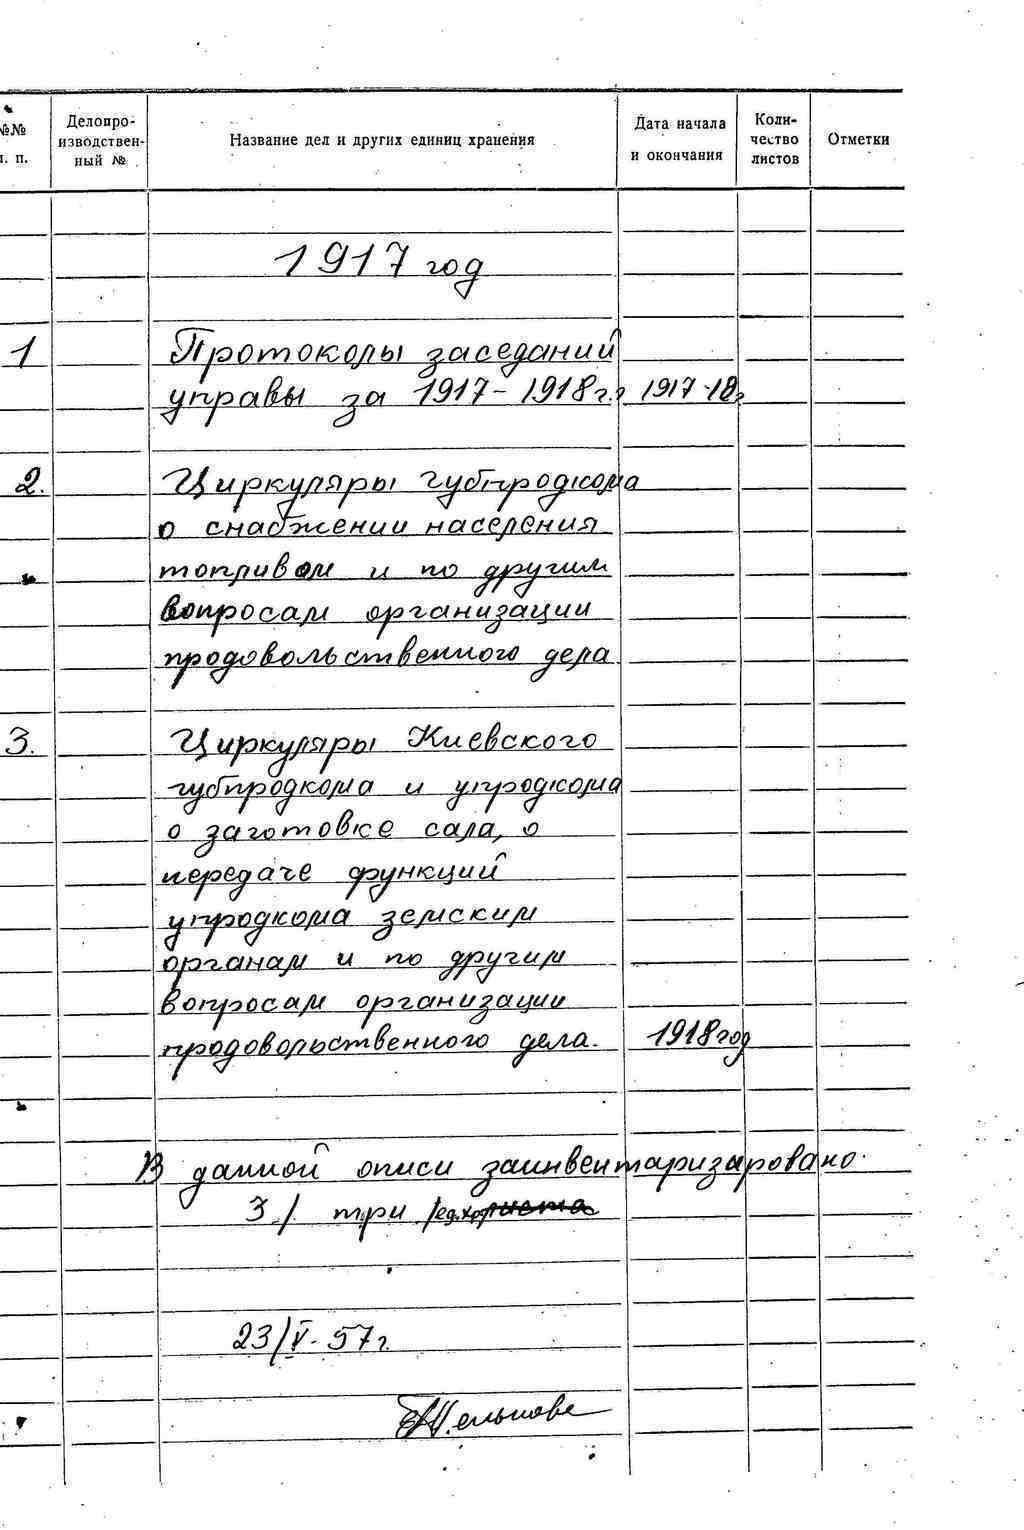 №№ п. п.
Делопро-
изводствен-
ный №
Название дел и других единиц хранения
Дата начала
и окончания
Коли-
чество
листов
Отметки
1917 год
1 Протоколы заседаний
управы за 1917-1918г.г 1917-18г
2. Циркуляры губпродкома
о снабжении населения
топливом и по другим
вопросам организации
продовольственного дела
3. Циркуляры Киевского
губпродкома и упродкома
о заготовке сала, о
передаче функций
упродкома земским
органам и по другим
вопросам организации
продовольственного дела. 1918 год
В данной описи заинвентаризировано
3 / три / ед.хр листа
23/V-57г.